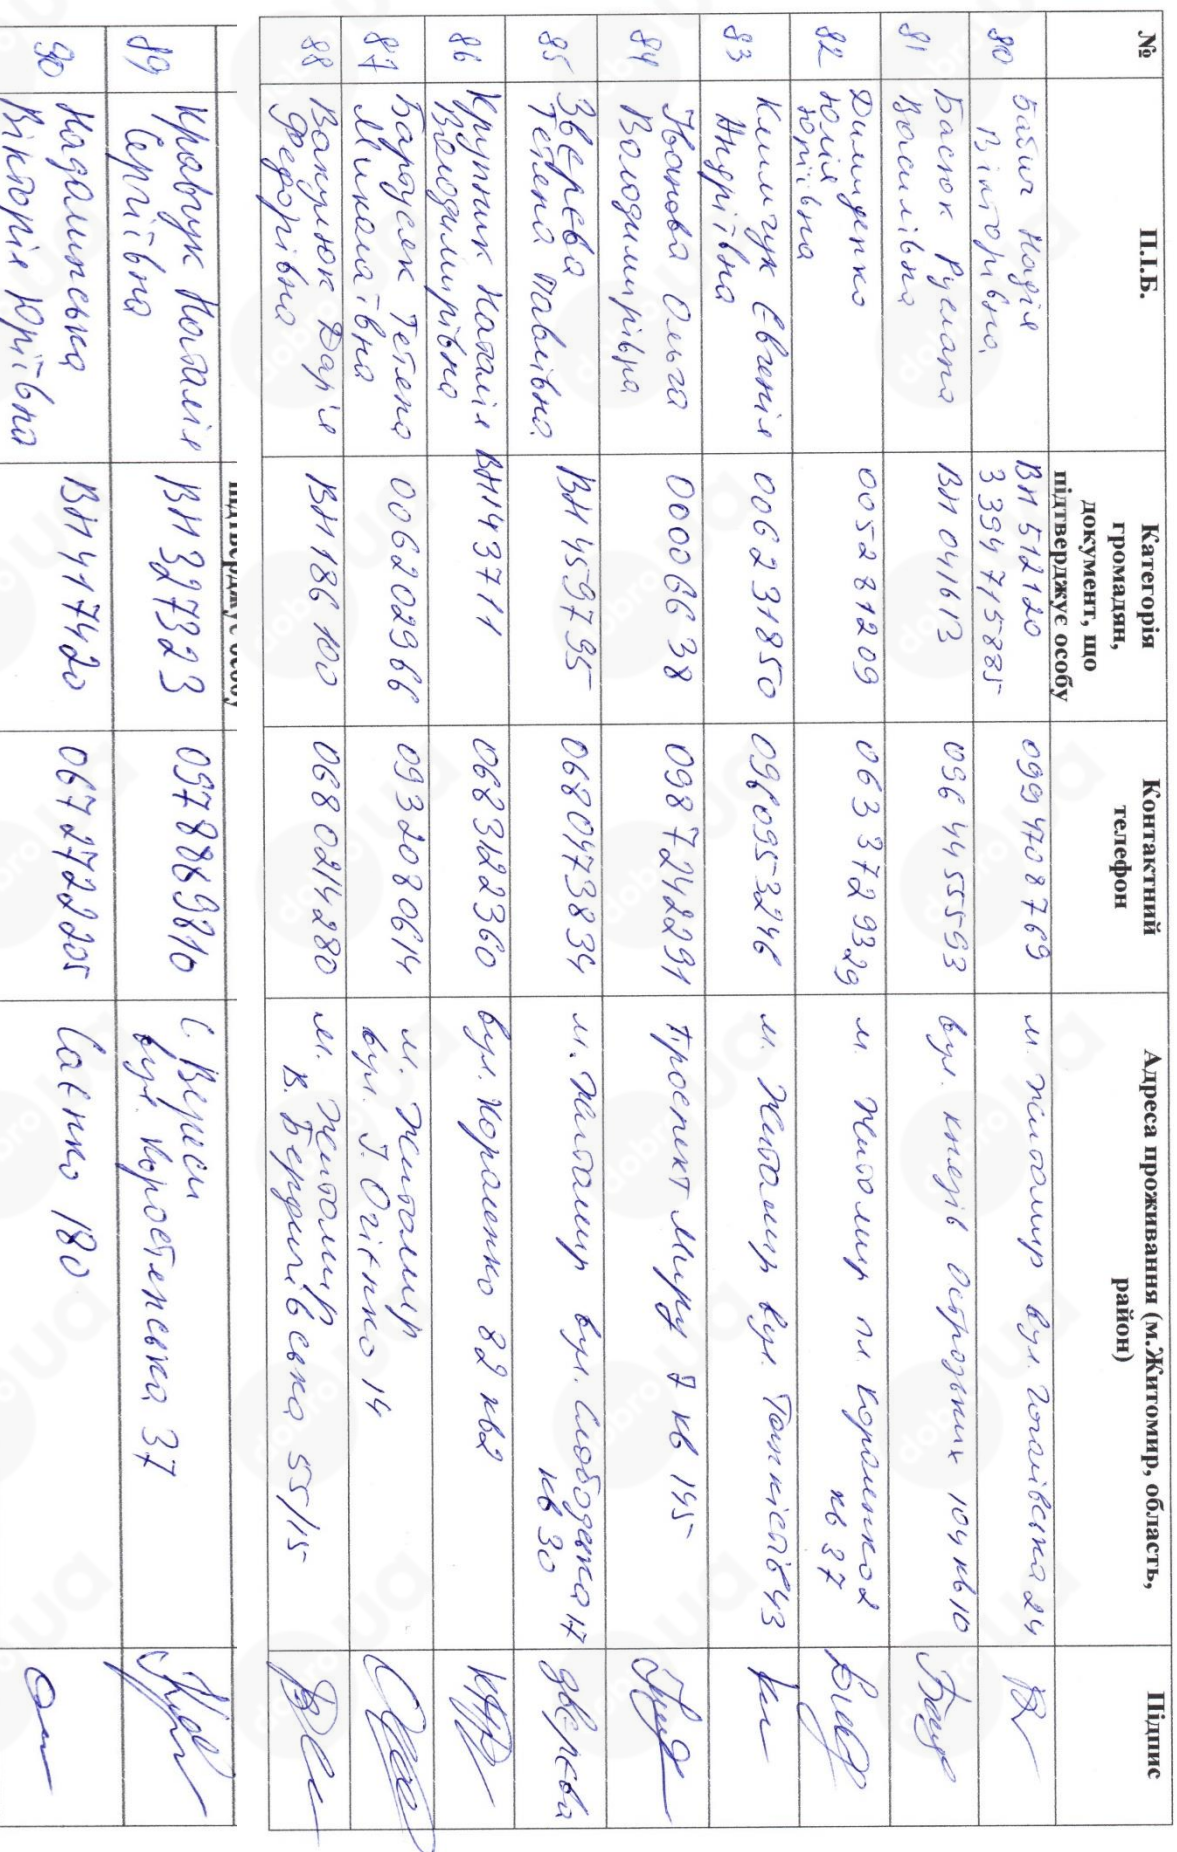 № П.І.Б. Категорія громадян, документ, що підтверджує особу Контактний телефон Адреса проживання (м.Житомир, область, район) Підпис
80 Бабич Надія Вікторівна ВН 512120 3394715885 0994708769 м. Житомир вул. Гоголівська 24
81 Басюк Руслана Василівна ВН 041613 0964455593 вул. князів Острозьких 104 кв 10
82 Димиденко Юлія Юріївна 005281209 0633729329 м. Житомир пл. Короленка 2 кв 37
83 Климчук Євгенія Андріївна 006231850 0960953246 м. Житомир вул. Танкістів 43
84 Іванова Ольга Володимирівна 00006638 0987242291 Проспект Миру 7 кв 145
85 Зверєва Тетяна Павлівна ВН 459795 0680473834 м. Житомир вул. Слобідська 17 кв 30 Зверєва
86 Крупник Наталія Володимирівна ВН143711 0683122360 вул. Короленко 82 кв2
87 Бардусяк Тетяна Миколаївна 006202966 0932080614 м. Житомир вул. І. Огієнко 14
88 Вакулюк Дар'я Федорівна ВН 186100 0680214280 м. Житомир В. Бердичівська 55/15
підтверджує особу
89 Кравчук Наталія Сергіївна ВН 327323 0978869810 С. Вереси вул. Коростенська 37
90 Надалинська Вікторія Юріївна ВН 417420 0672722205 Саєнко 180
dobro.ua